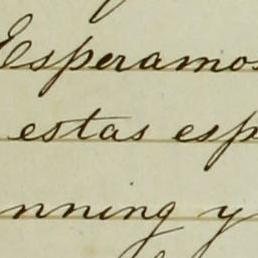 Esperamos
estas esp
nning y